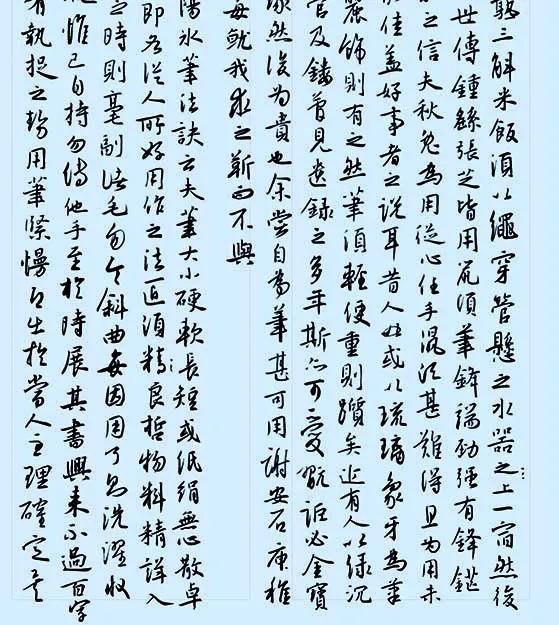 熟三斛米飯須以繩穿管懸之水器之上一宿然後
世傳鍾繇張芝皆用鼠須筆鋒端勁强有鋒鋩
之信夫秋兔為用從心任手鼠須甚難得且為用未
佳蓋好事者之說耳昔人或以琉璃象牙為筆
麗飾則有之然筆須輕便重則躓矣近有人以綠沉
管及鏤管見遺錄之多年斯亦可愛翫詎必金寶
琢然後為貴也余嘗自為筆甚可用謝安石庾稚
每就我求之靳而不與
陽冰筆法訣云夫筆大小硬軟長短或紙絹無心散卓
即各從人所好用作之法匠須精良哲物料精詳入
之時則毫副諸毛勿令斜曲每因用了即洗濯收
惟己自持勿傳他手至於時展其書興來不過百字
有執捉之勢用筆緊慢即出於當人主理確定矣